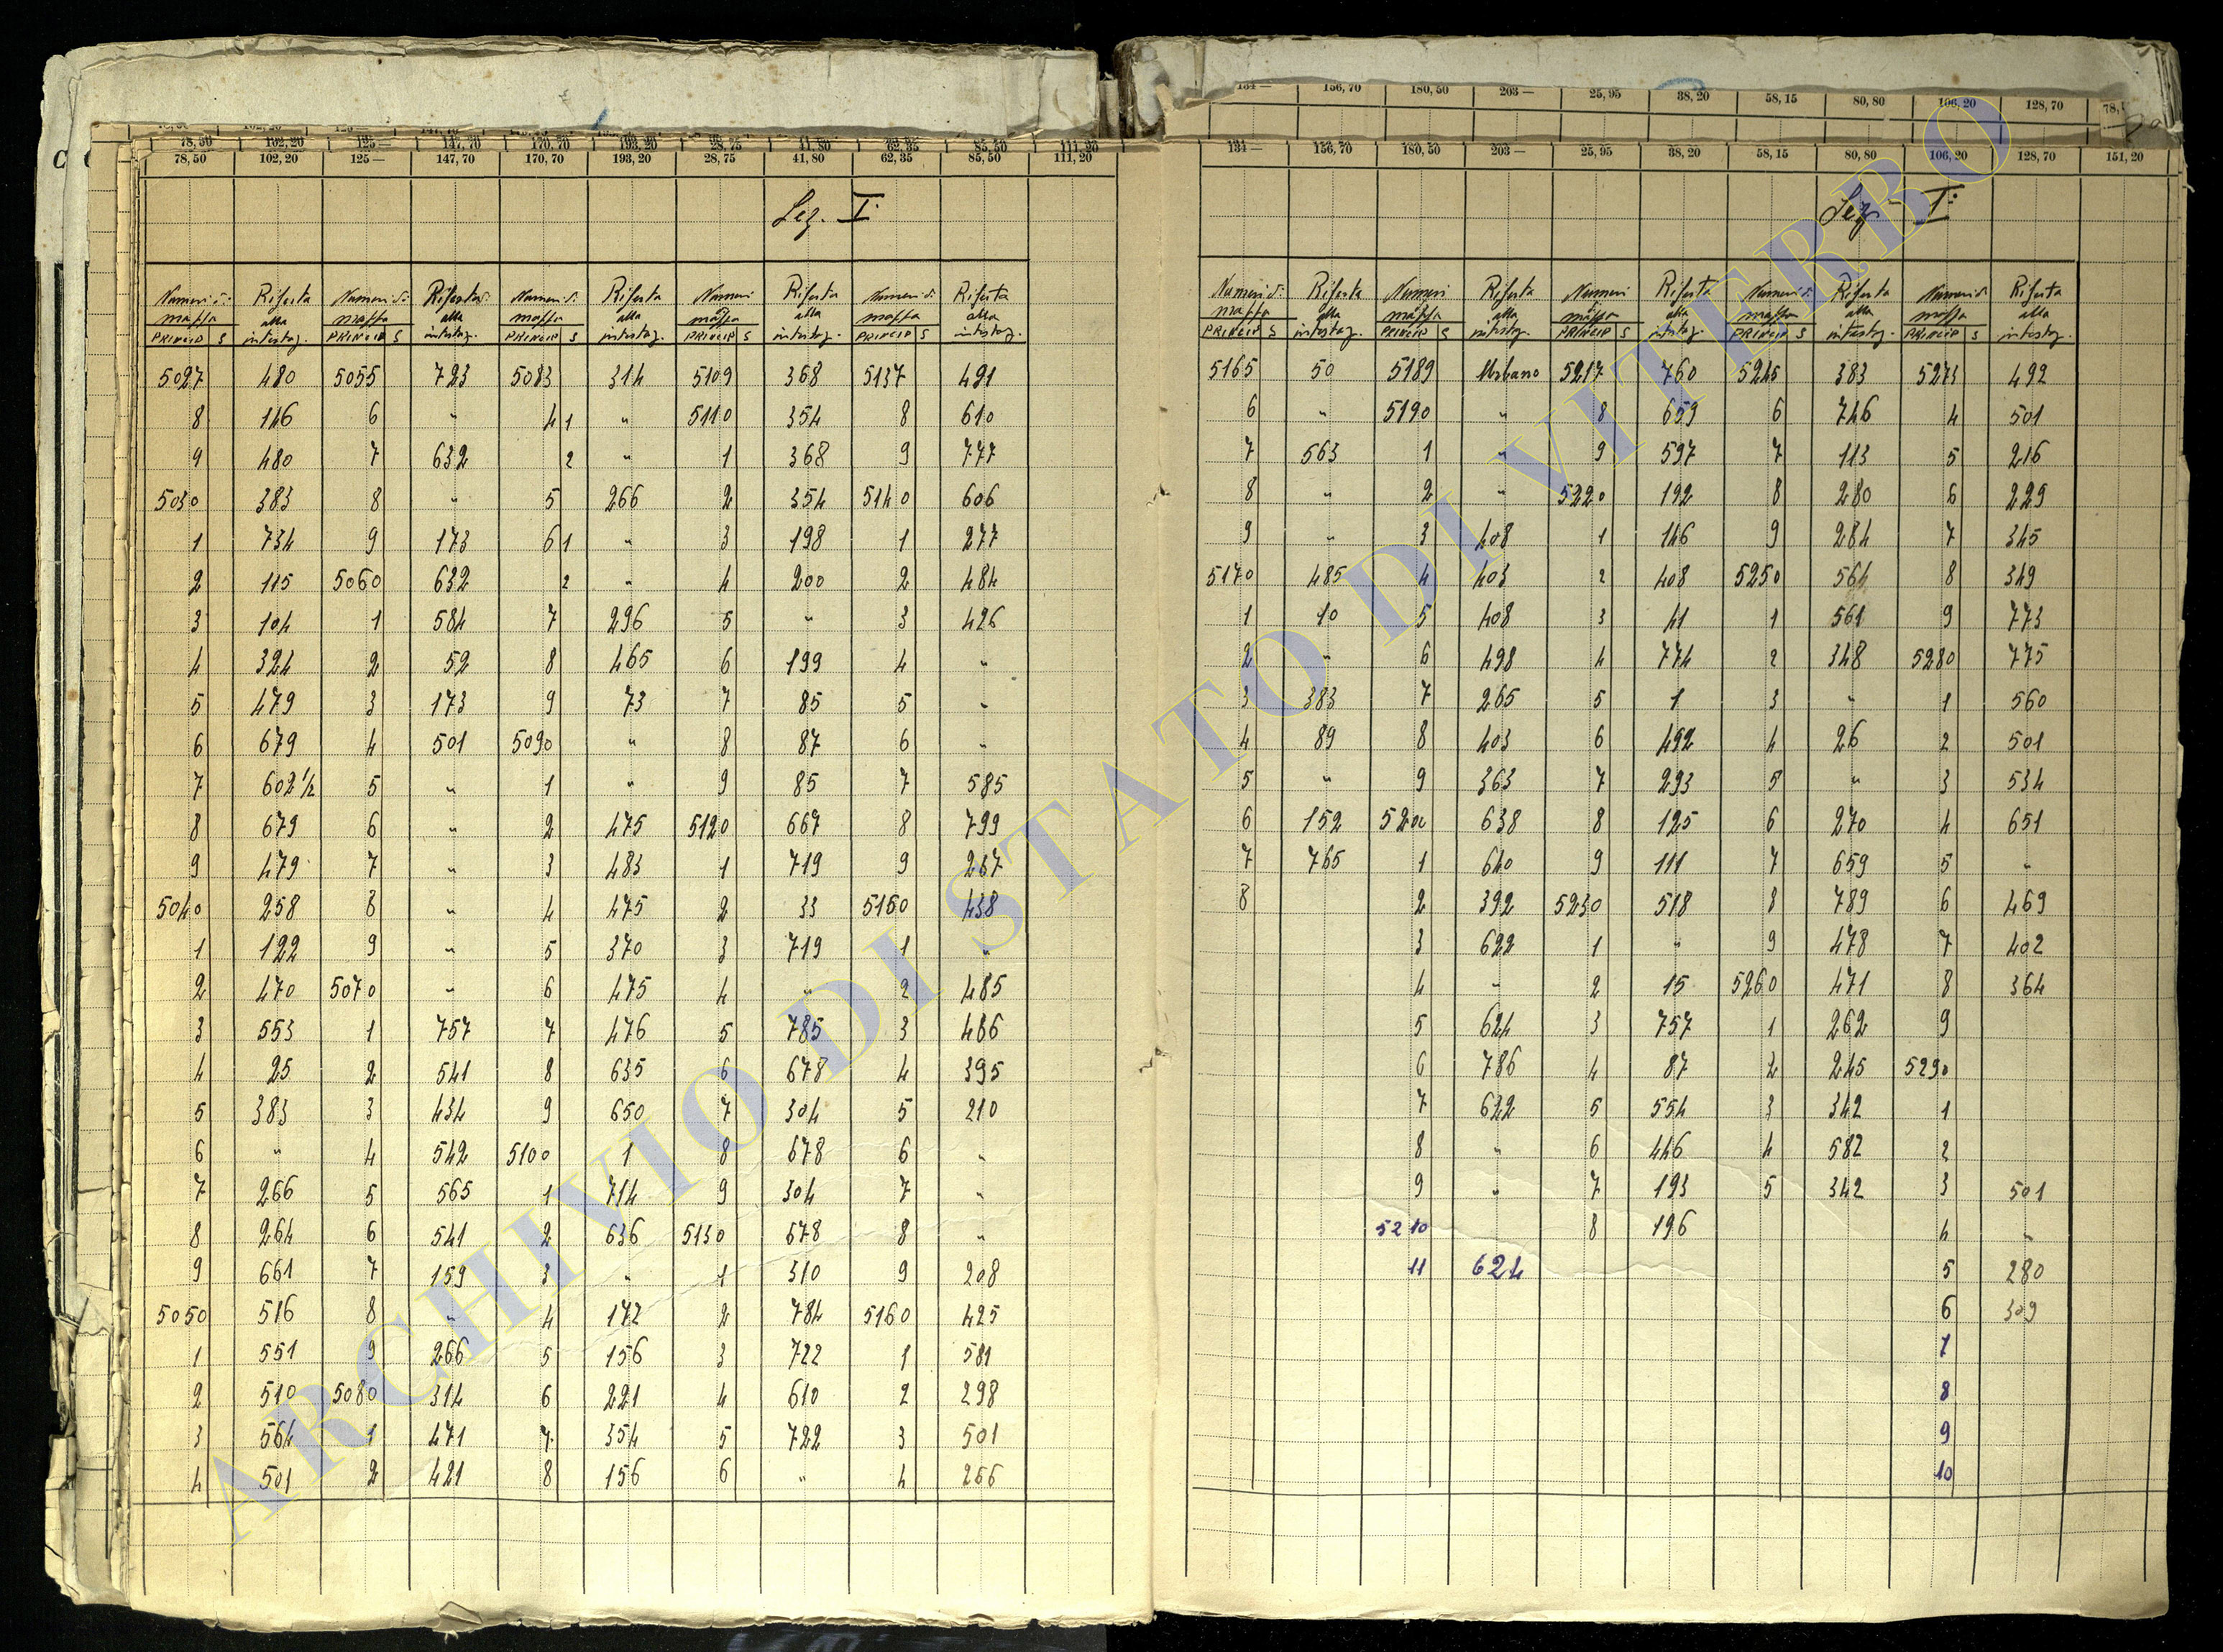 78,50 102,20 125— 147,70 170,70 193,20 28,75 41,80 62,35 85,50 111,20
Sez. I.
Numeri di mappa Riferta alla intestaz. Numeri di mappa Riferta alla intestaz. Numeri di mappa Riferta alla intestaz. Numeri mappa Riferta alla intestaz. Numeri di mappa Riferta alla intestaz.
PRINCIP S PRINCIP S PRINCIP S PRINCIP S PRINCIP S
5027 480 5055 723 5083 314 5109 368 5137 421
8 146 6 " 4 1 " 5110 354 8 610
9 480 7 632 2 " 1 368 9 777
5030 383 8 " 5 266 2 354 5140 606
1 734 9 173 6 1 " 3 198 1 277
2 115 5060 632 2 " 4 200 2 484
3 104 1 584 7 296 5 " 3 426
4 324 2 52 8 465 6 199 4 "
5 479 3 173 9 73 7 85 5 "
6 679 4 501 5090 " 8 87 6 "
7 602 1/2 5 " 1 " 9 85 7 585
8 679 6 " 2 475 5120 667 8 799
9 479 7 " 3 483 1 719 9 267
5040 258 8 " 4 475 2 33 5150 438
1 122 9 " 5 370 3 719 1 "
2 470 5070 " 6 475 4 " 2 485
3 553 1 757 7 476 5 785 3 486
4 25 2 541 8 635 6 678 4 395
5 383 3 434 9 650 7 304 5 210
6 " 4 542 5100 1 8 678 6 "
7 266 5 565 1 714 9 304 7 "
8 264 6 541 2 636 5130 678 8 "
9 661 7 159 3 " 1 310 9 208
5050 516 8 " 4 172 2 784 5160 425
1 551 9 266 5 156 3 722 1 581
2 510 5080 314 6 221 4 610 2 298
3 564 1 471 7 354 5 722 3 501
4 501 2 421 8 156 6 " 4 266
134— 156,70 180,50 203— 25,95 38,20 58,15 80,80 106,20 128,70
134— 156,70 180,50 203— 25,95 38,20 58,15 80,80 106,20 128,70 151,20
Sez I:
Numeri di mappa Riferta alla intestaz. Numeri di mappa Riferta alla intestaz. Numeri di mappa Riferta alla intestaz. Numeri di mappa Riferta alla intestaz. Numeri di mappa Riferta alla intestaz.
PRINCIP S PRINCIP S PRINCIP S PRINCIP S PRINCIP S
5165 50 5189 Urbano 5217 760 5245 383 5273 492
6 " 5190 " 8 659 6 746 4 501
7 563 1 " 9 597 7 113 5 216
8 " 2 " 5220 192 8 280 6 229
9 " 3 408 1 146 9 284 7 345
5170 485 4 403 2 408 5250 564 8 349
1 10 5 408 3 41 1 561 9 773
2 " 6 498 4 774 2 348 5280 775
3 383 7 265 5 1 3 " 1 560
4 89 8 403 6 492 4 26 2 501
5 " 9 363 7 293 5 " 3 534
6 152 5200 638 8 125 6 270 4 651
7 765 1 640 9 111 7 659 5 "
8 2 392 5230 518 8 789 6 469
3 622 1 " 9 478 7 402
4 " 2 15 5260 471 8 364
5 624 3 757 1 262 9
6 786 4 87 2 245 5290
7 622 5 554 3 342 1
8 " 6 446 4 582 2
9 " 7 193 5 342 3 501
5210 8 196 4 "
11 624 5 280
6 309
7
8
9
10
ARCHIVIO DI STATO DI VITERBO